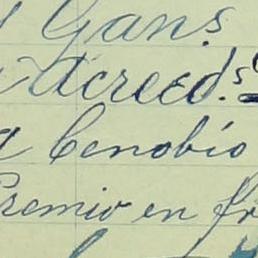 y Gans.
Acreed.s
a Cenobio
Premio en fr